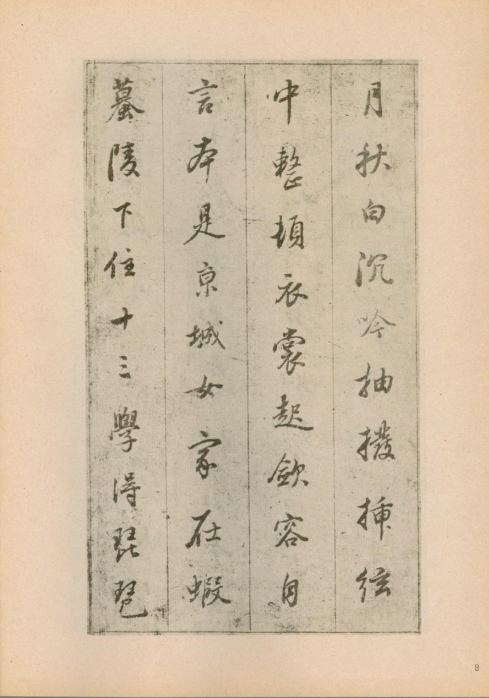 月秋白沉吟抽撥揷絃
中整頓衣裳起歛容自
言本是京城女家在蝦
蟇陵下住十三學得琵琶
8